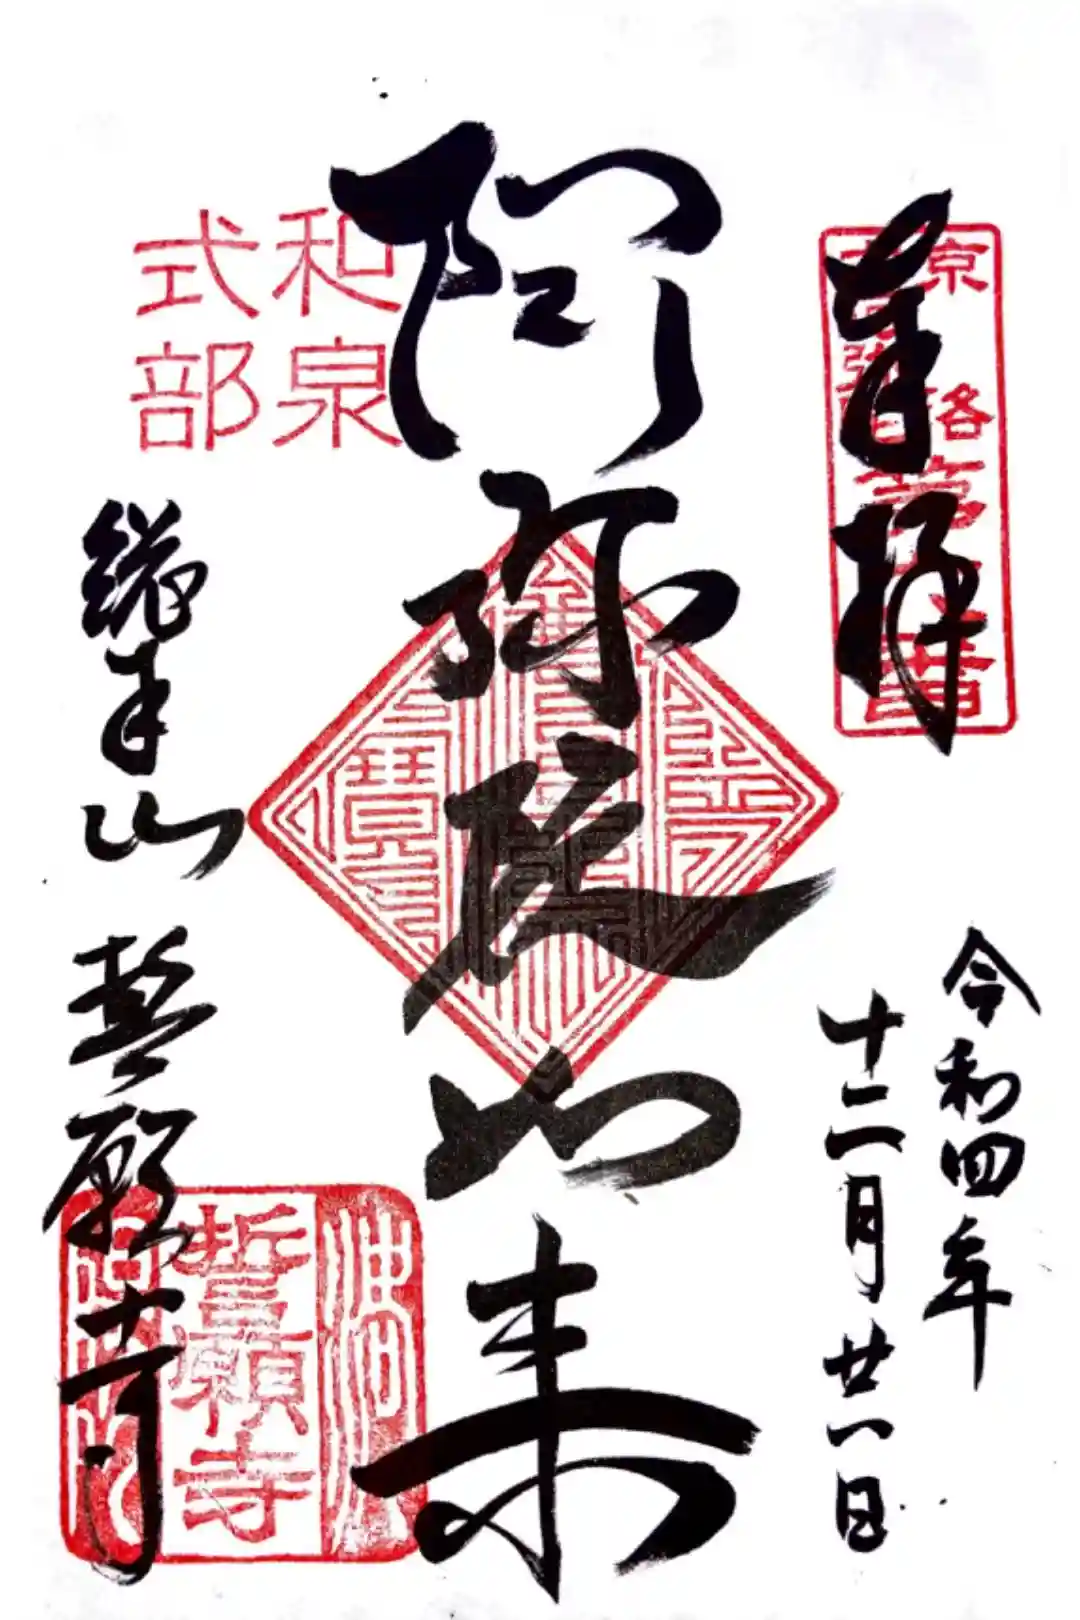 奉拝
令和四年
十二月廿八日
阿弥陀如来
和泉
式部
総本山 誓願寺
誓願寺